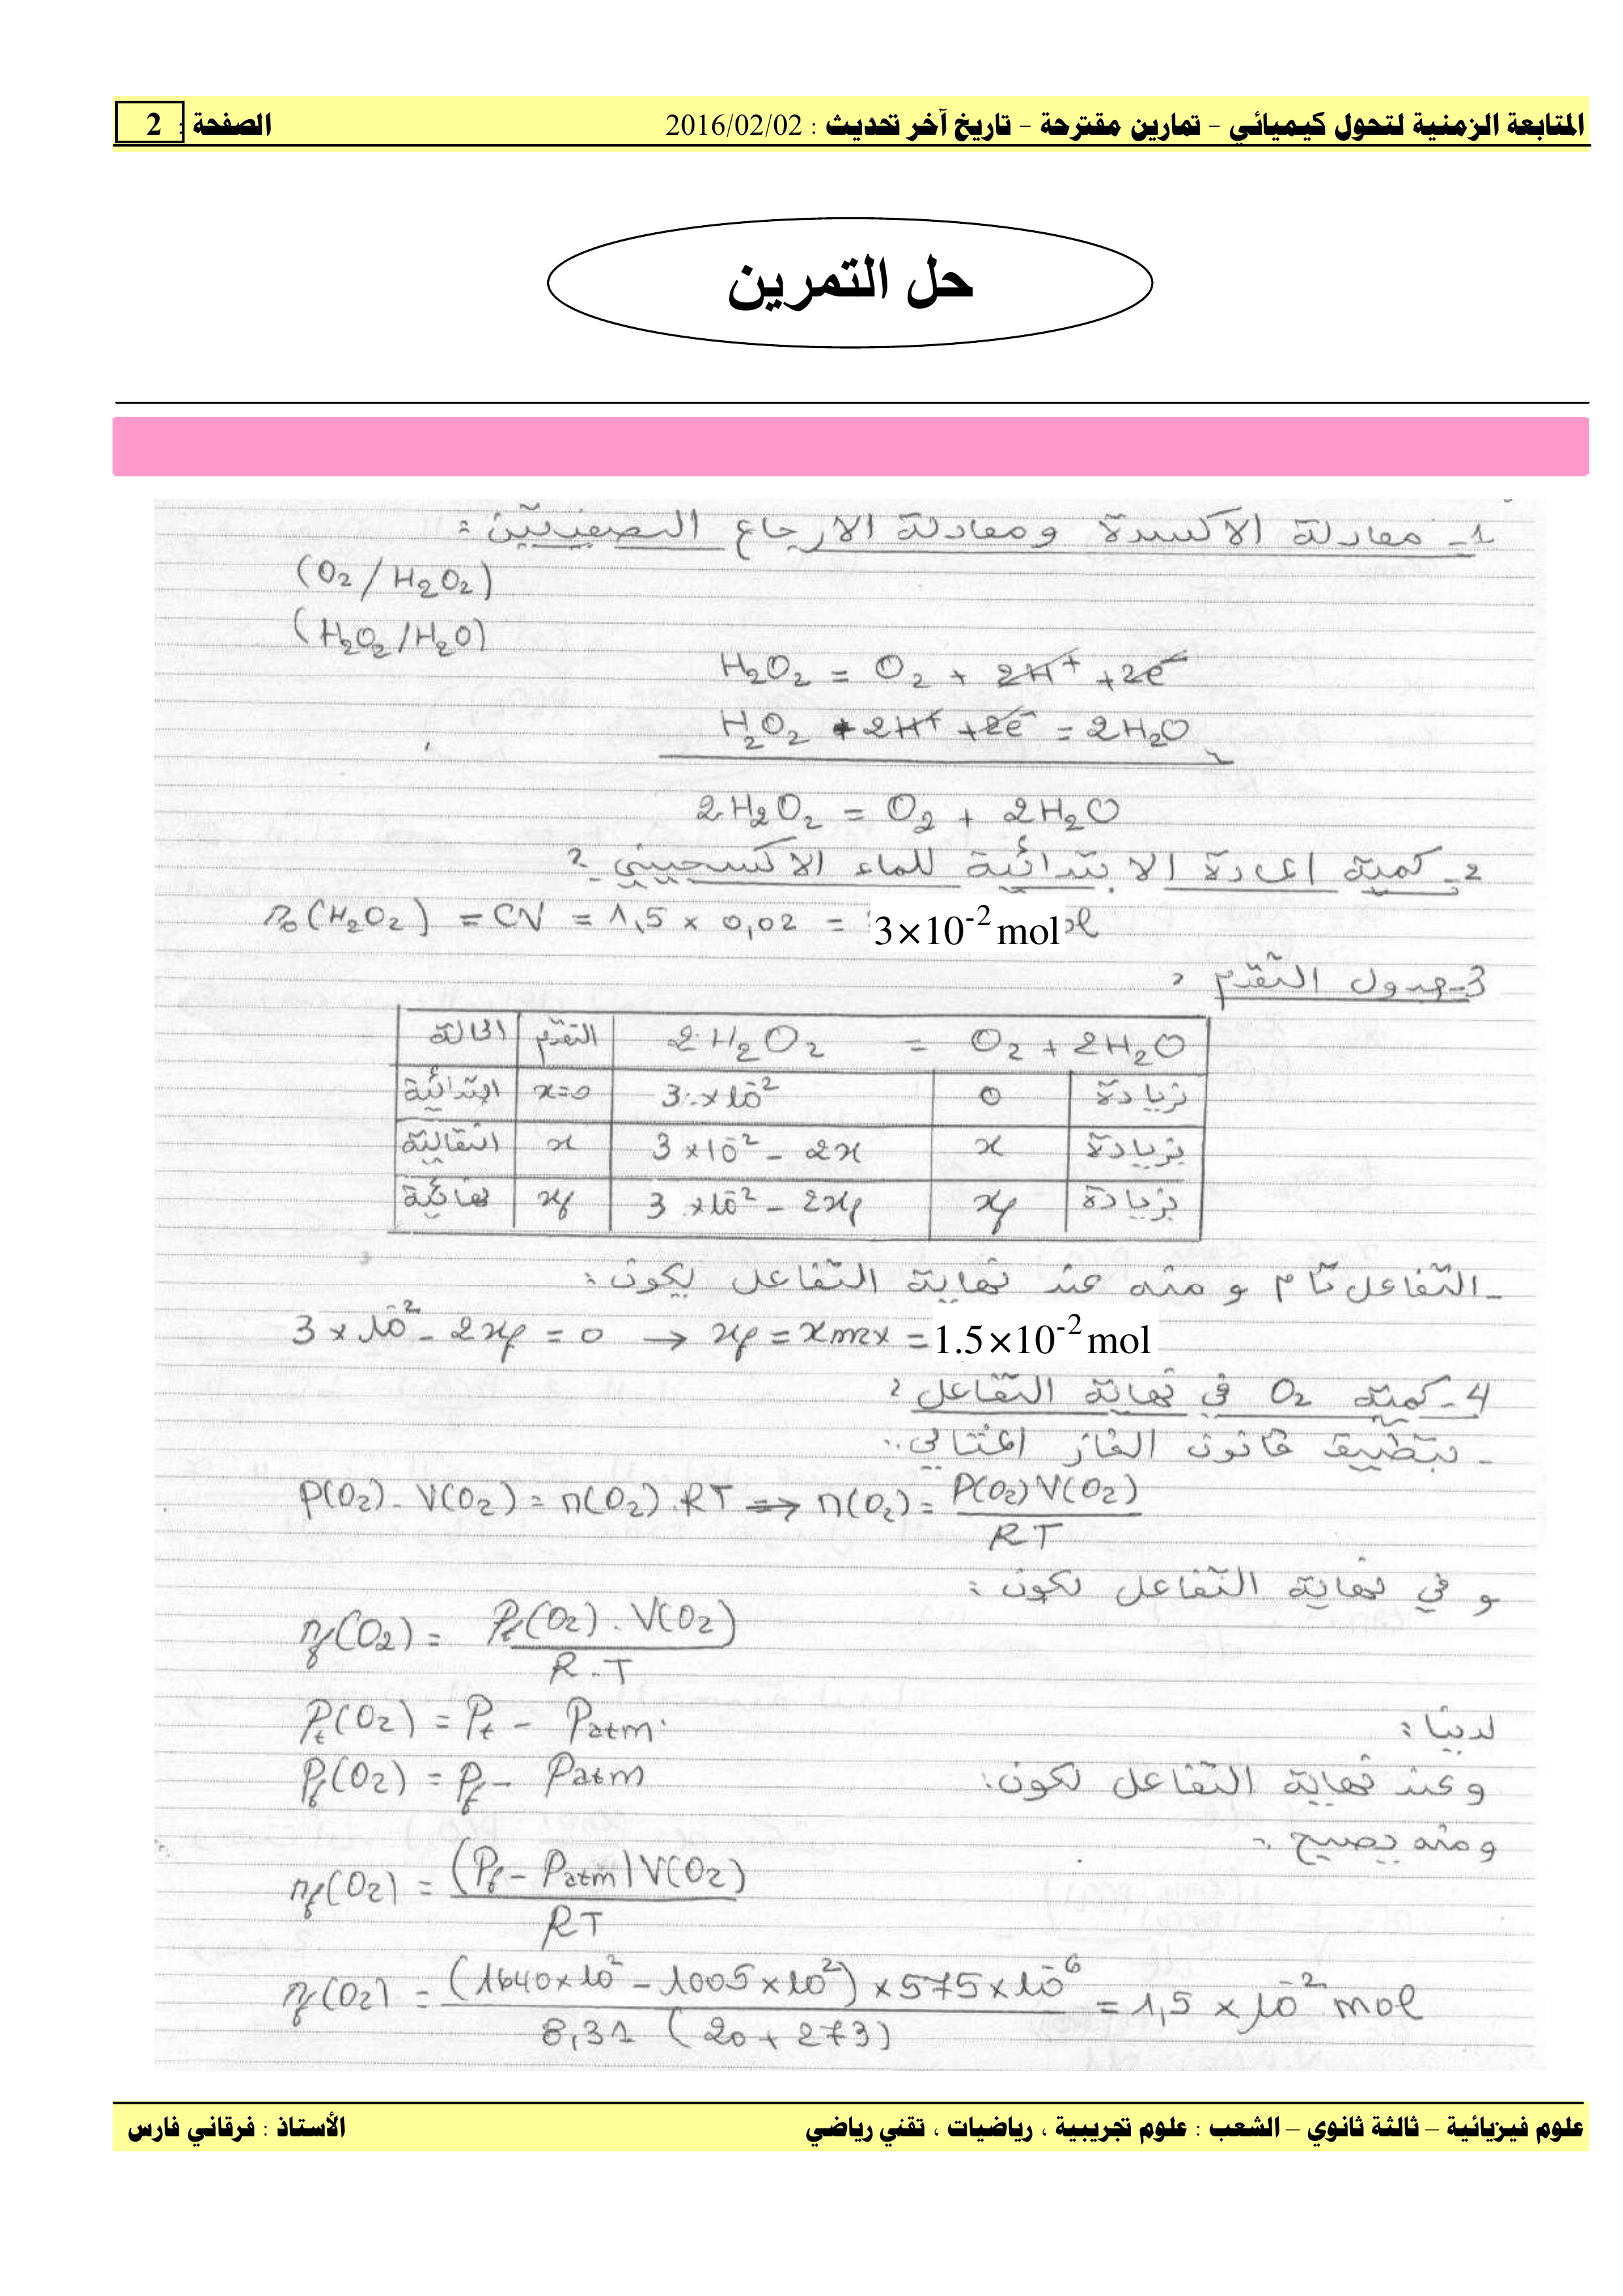 المتابعة الزمنية لتحول كيميائي – تمارين مقترحة – تاريخ آخر تحديث : 2016/02/02 الصفحة : 2
حل التمرين
1- معادلة الأكسدة ومعادلة الارجاع النصفيتين :
(O₂ / H₂O₂)
(H₂O₂ / H₂O)
H₂O₂ = O₂ + 2H⁺ + 2e⁻
H₂O₂ + 2H⁺ + 2e⁻ = 2H₂O
2H₂O₂ = O₂ + 2H₂O
2- كمية المادة الابتدائية للماء الاكسجيني :
n₀(H₂O₂) = CV = 1,5 × 0,02 = 3×10⁻² mol
3- جدول التقدم :
الحالة التقدم 2H₂O₂ = O₂ + 2H₂O
ابتدائية x=0 3×10⁻² 0 بزيادة
انتقالية x 3×10⁻² - 2x x بزيادة
نهائية xf 3×10⁻² - 2xf xf بزيادة
- التفاعل تام و منه عند نهاية التفاعل يكون :
3×10⁻² - 2xf = 0 → xf = xmax = 1.5×10⁻² mol
4- كمية O₂ في نهاية التفاعل :
- بتطبيق قانون الغاز المثالي :
P(O₂) . V(O₂) = n(O₂) . RT ⇒ n(O₂) = P(O₂) V(O₂) / RT
و في نهاية التفاعل نكون :
nf(O₂) = Pf(O₂) . V(O₂) / R.T
لدينا : Pt(O₂) = Pt - Patm
وعند نهاية التفاعل نكون : Pf(O₂) = Pf - Patm
ومنه يصبح :
nf(O₂) = (Pf - Patm) V(O₂) / RT
nf(O₂) = (1640×10² - 1005×10²) × 575×10⁻⁶ / 8,31 (20 + 273) = 1,5 × 10⁻² mol
علوم فيزيائية – ثالثة ثانوي – الشعب : علوم تجريبية ، رياضيات ، تقني رياضي الأستاذ : فرقاني فارس